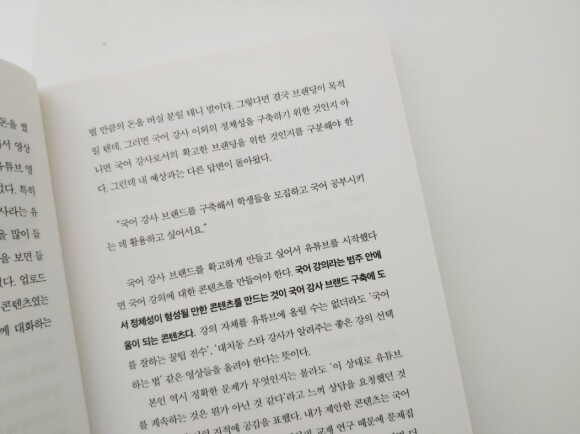 돈을 썼
서 영상
유튜브 영
었다. 특히
사라는 유
을 많이 들
을 보면 들
다. 업로드
콘텐츠였는
께 대화하는
벌 만큼의 돈을 버실 분일 테니 말이다. 그렇다면 결국 브랜딩이 목적
일 텐데, 그러면 국어 강사 이외의 정체성을 구축하기 위한 것인지 아
니면 국어 강사로서의 확고한 브랜딩을 위한 것인지를 구분해야 한
다. 그런데 내 예상과는 다른 답변이 돌아왔다.
“국어 강사 브랜드를 구축해서 학생들을 모집하고 국어 공부시키
는 데 활용하고 싶어서요.”
국어 강사 브랜드를 확고하게 만들고 싶어서 유튜브를 시작했다
면 국어 강의에 대한 콘텐츠를 만들어야 한다. 국어 강의라는 범주 안에
서 정체성이 형성될 만한 콘텐츠를 만드는 것이 국어 강사 브랜드 구축에 도
움이 되는 콘텐츠다. 강의 자체를 유튜브에 올릴 수는 없더라도 ‘국어
를 잘하는 꿀팁 전수’, ‘대치동 스타 강사가 알려주는 좋은 강의 선택
하는 법’ 같은 영상들을 올려야 한다는 뜻이다.
본인 역시 정확한 문제가 무엇인지는 몰라도 ‘이 상태로 유튜브
를 계속하는 것은 뭔가 아닌 것 같다’라고 느껴 상담을 요청했던 것
지적에 공감을 표했다. 내가 제안한 콘텐츠는 국어
교재 연구 때문에 문제집